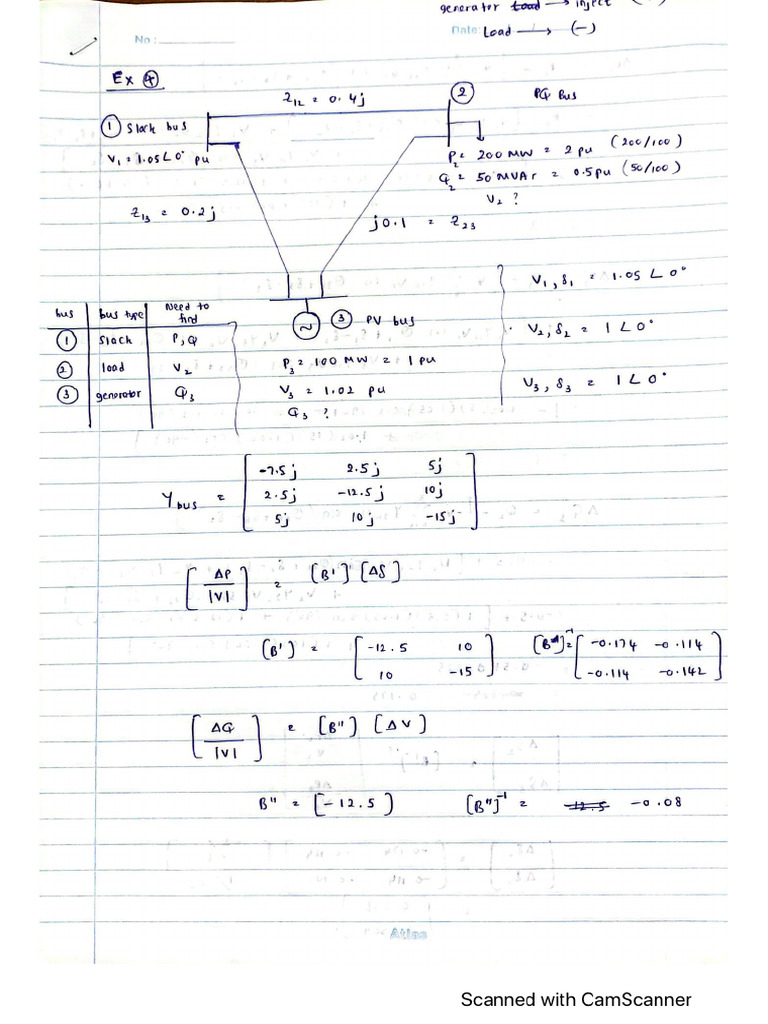 generator load → inject
No :
Date: Load → (-)
Ex ④
Z12 = 0.4j
② PQ Bus
① Slack bus
V1 = 1.05∠0° pu
P2 = 200 MW = 2 pu (200/100)
Q2 = 50 MVAr = 0.5pu (50/100)
V2 ?
Z13 = 0.2j
j0.1 = Z23
V1, δ1 = 1.05 ∠ 0°
V2, δ2 = 1 ∠ 0°
V3, δ3 = 1 ∠ 0°
bus bus type Need to find
① Slack P, Q
② load V2
③ generator Q3
~ ③ PV bus
P3 = 100 MW = 1 pu
V3 = 1.02 pu
Q3 ?
Ybus = [ -7.5j 2.5j 5j
2.5j -12.5j 10j
5j 10j -15j ]
[ΔP/|V|] = [B'] [Δδ]
[B'] = [ -12.5 10
10 -15 ]
[B']⁻¹ = [ -0.174 -0.114
-0.114 -0.142 ]
[ΔQ/|V|] = [B''] [ΔV]
B'' = [-12.5] [B'']⁻¹ = -12.5 -0.08
Atlas
Scanned with CamScanner